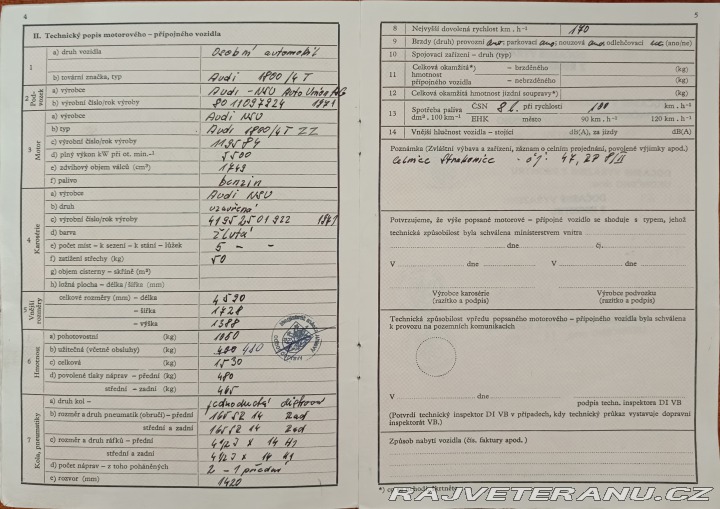 4
II. Technický popis motorového – přípojného vozidla
1
a) druh vozidla Osobní automobil
b) tovární značka, typ Audi 1800/4 T
2 Podvozek
a) výrobce Audi - NSU Auto Union AG
b) výrobní číslo/rok výroby 8011097924 1971
3 Motor
a) výrobce Audi NSU
b) typ Audi 1800/4T ZZ
c) výrobní číslo/rok výroby 119584
d) plný výkon kW při ot. min.-¹ 5500
e) zdvihový objem válců (cm³) 1749
f) palivo benzin
4 Karosérie
a) výrobce Audi NSU
b) druh uzavřená
c) výrobní číslo/rok výroby 1971
d) barva žlutá
e) počet míst – k sezení – k stání – lůžek 5 - -
f) zatížení střechy (kg) 50
g) objem cisterny – skříně (m³)
h) ložná plocha – délka /šířka (mm)
5 Vnější rozměry
celkové rozměry (mm) – délka 4590
– šířka 1728
– výška 1388
6 Hmotnost
a) pohotovostní (kg) 1060
b) užitečná (včetně obsluhy) (kg) 410
c) celková (kg) 1530
d) povolené tlaky náprav – přední (kg) 480
střední – zadní (kg) 465
7 Kola, pneumatiky
a) druh kol – jednoduchá
b) rozměr a druh pneumatik (obručí) – přední 165 SR 14 Rad
střední a zadní 165 SR 14 Rad
c) rozměr a druh ráfků – přední 4 1/2 J x 14 H1
střední a zadní 4 1/2 J x 14 H1
d) počet náprav – z toho poháněných 2 – 1 přední
e) rozvor (mm) 1420
5
8 Nejvyšší dovolená rychlost km . h-¹ 170
9 Brzdy (druh) provozní ano, parkovací ano, nouzová ano, odlehčovací ne (ano/ne)
10 Spojovací zařízení – druh (typ)
11 Celková okamžitá*) – brzděného (kg)
hmotnost
přípojného vozidla – nebrzděného (kg)
12 Celková okamžitá hmotnost jízdní soupravy*) (kg)
13 Spotřeba paliva ČSN 8 l. při rychlosti 100 km . h-¹
dm³ . 100 km-¹ EHK město 90 km . h-¹ 120 km . h-¹
14 Vnější hlučnost vozidla – stojící dB(A), za jízdy dB(A)
Poznámka (Zvláštní výbava a zařízení, záznam o celním projednání, povolené výjimky apod.)
celnice Strakonice - čj: 47,
Potvrzujeme, že výše popsané motorové – přípojné vozidlo se shoduje s typem, jehož
technická způsobilost byla schválena ministerstvem vnitra
dne čj.
V dne V dne
Výrobce karosérie Výrobce podvozku
(razítko a podpis) (razítko a podpis)
Technická způsobilost vpředu popsaného motorového – přípojného vozidla byla schválena
k provozu na pozemních komunikacích
V dne
podpis techn. inspektora DI VB
(Potvrdí technický inspektor DI VB v případech, kdy technický průkaz vystavuje dopravní
inspektorát VB.)
Způsob nabytí vozidla (čís. faktury apod.)
RAJVETERANU.CZ